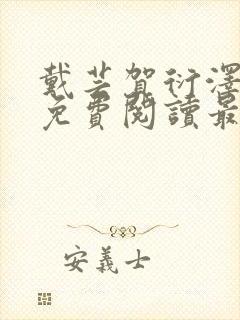 戴芸賀衍澤
免費閱讀最
安義士